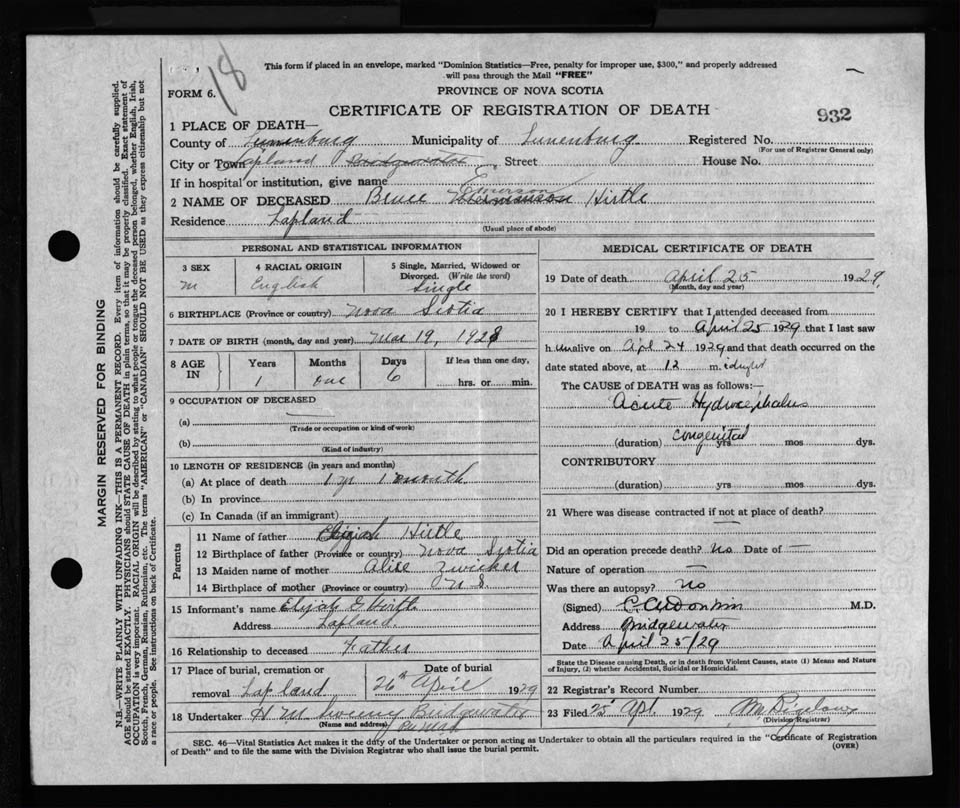 18
This form if placed in an envelope, marked "Dominion Statistics—Free, penalty for improper use, $300," and properly addressed
will pass through the Mail "FREE"
FORM 6.
PROVINCE OF NOVA SCOTIA
CERTIFICATE OF REGISTRATION OF DEATH
932
1 PLACE OF DEATH—
County of Lunenburg Municipality of Lunenburg Registered No.
(For use of Registrar General only)
City or Town Lapland Bridgewater Street House No.
If in hospital or institution, give name
2 NAME OF DECEASED Bruce Emerson Hirtle
Residence Lapland
(Usual place of abode)
PERSONAL AND STATISTICAL INFORMATION
3 SEX 4 RACIAL ORIGIN 5 Single, Married, Widowed or
Divorced. (Write the word)
m English Single
6 BIRTHPLACE (Province or country) Nova Scotia
7 DATE OF BIRTH (month, day and year) Mar 19, 1928
8 AGE IN Years Months Days If less than one day,
1 one 6 hrs. or min.
9 OCCUPATION OF DECEASED
(a) —
(Trade or occupation or kind of work)
(b)
(Kind of industry)
10 LENGTH OF RESIDENCE (in years and months)
(a) At place of death 1 yr 1 month
(b) In province
(c) In Canada (if an immigrant)
Parents
11 Name of father Elijah Hirtle
12 Birthplace of father (Province or country) Nova Scotia
13 Maiden name of mother Alice Zwicker
14 Birthplace of mother (Province or country) N S.
15 Informant's name Elijah G Hirtle
Address Lapland.
16 Relationship to deceased Father
17 Place of burial, cremation or Date of burial
removal Lapland 26th April 1929
18 Undertaker H M Bridgewater
(Name and address)
MEDICAL CERTIFICATE OF DEATH
19 Date of death April 25 1929,
(Month, day and year)
20 I HEREBY CERTIFY that I attended deceased from
19 to April 25 1929 that I last saw
him alive on Apl 24 1929 and that death occurred on the
date stated above, at 12 midnight
The CAUSE of DEATH was as follows:—
Acute Hydrocephalus
congenital
(duration) yrs mos dys.
CONTRIBUTORY
(duration) yrs mos dys.
21 Where was disease contracted if not at place of death?
Did an operation precede death? no Date of —
Nature of operation —
Was there an autopsy? no
(Signed) M.D.
Address Bridgewater
Date April 25/29
State the Disease causing Death, or in death from Violent Causes, state (1) Means and Nature
of Injury, (2) whether Accidental, Suicidal or Homicidal.
22 Registrar's Record Number
23 Filed 25 Apl. 1929
(Division Registrar)
SEC. 46—Vital Statistics Act makes it the duty of the Undertaker or person acting as Undertaker to obtain all the particulars required in the "Certificate of Registration
of Death" and to file the same with the Division Registrar who shall issue the burial permit.
(OVER)
MARGIN RESERVED FOR BINDING
N.B.—WRITE PLAINLY WITH UNFADING INK—THIS IS A PERMANENT RECORD. Every item of information should be carefully supplied.
AGE should be stated EXACTLY. PHYSICIANS should STATE CAUSE OF DEATH in plain terms, so that it may be properly classified. Exact statement of
OCCUPATION is very important. RACIAL ORIGIN will be described by stating to what people or tongue the deceased person belonged, whether English, Irish,
Scotch, French, German, Russian, Ruthenian, etc. The terms "AMERICAN" or "CANADIAN" SHOULD NOT BE USED as they express citizenship but not
a race or people. See instructions on back of Certificate.